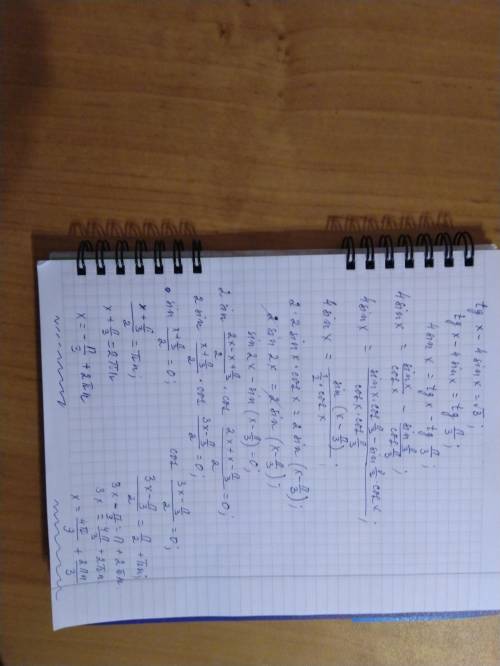 tg x - 4 sin x = √3;
tg x - 4 sin x = tg π/3;
4 sin x = tg x - tg π/3;
4 sin x = sin x/cos x - sin π/3/cos π/3;
4 sin x = (sin x · cos π/3 - sin π/3 cos x)/(cos x · cos π/3);
4 sin x = sin (x - π/3)/(1/2 · cos x);
2 · 2 sin x · cos x = 2 sin (x - π/3);
2 sin 2x = 2 sin (x - π/3);
sin 2x - sin (x - π/3) = 0;
2 sin (2x - x + π/3)/2 · cos (2x + x - π/3)/2 = 0;
2 sin (x + π/3)/2 · cos (3x - π/3)/2 = 0;
sin (x + π/3)/2 = 0; cos (3x - π/3)/2 = 0;
(x + π/3)/2 = πn; (3x - π/3)/2 = π/2 + πn;
x + π/3 = 2πn 3x - π/3 = π + 2πn
3x = 4π/3 + 2πn
x = - π/3 + 2πn x = 4π/9 + 2πn/3